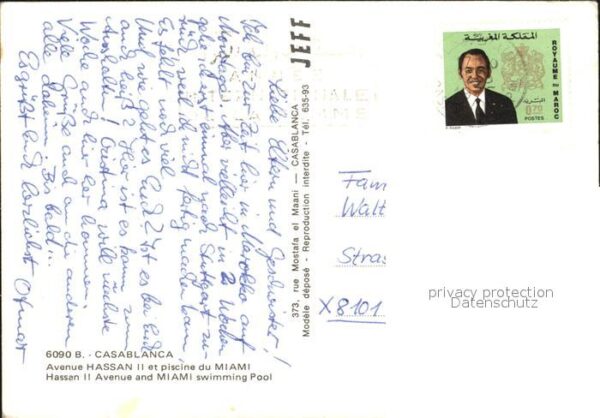 Liebe Eltern und Geschwister!
Ich bin zur Zeit hier in Marokko auf
Montage. Aber vielleicht in 2 Wochen
gehe ich einmal nach Stuttgart zu-
rück, weil ich nicht fertig werden kann,
Es fehlt noch viel.
Und wie geht es Euch? Ist es bei Euch
auch heiß? Hier ist es kaum zum
Aushalten! Cristina will nächste
Woche hier her kommen.
Viele Grüße auch an die anderen
alle daheim. Bis bald...
Es grüßt Euch herzlichst Otmar
JEFF
373, rue Mostafa el Maani — CASABLANCA
Modèle déposé Reproduction interdite Tél. 635-93
المملكة المغربية
ROYAUME DU MAROC
البريد
0,70
POSTES
Fam
Walt
Stras
X8101
privacy protection
Datenschutz
6090 B. - CASABLANCA
Avenue HASSAN II et piscine du MIAMI
Hassan II Avenue and MIAMI swimming Pool